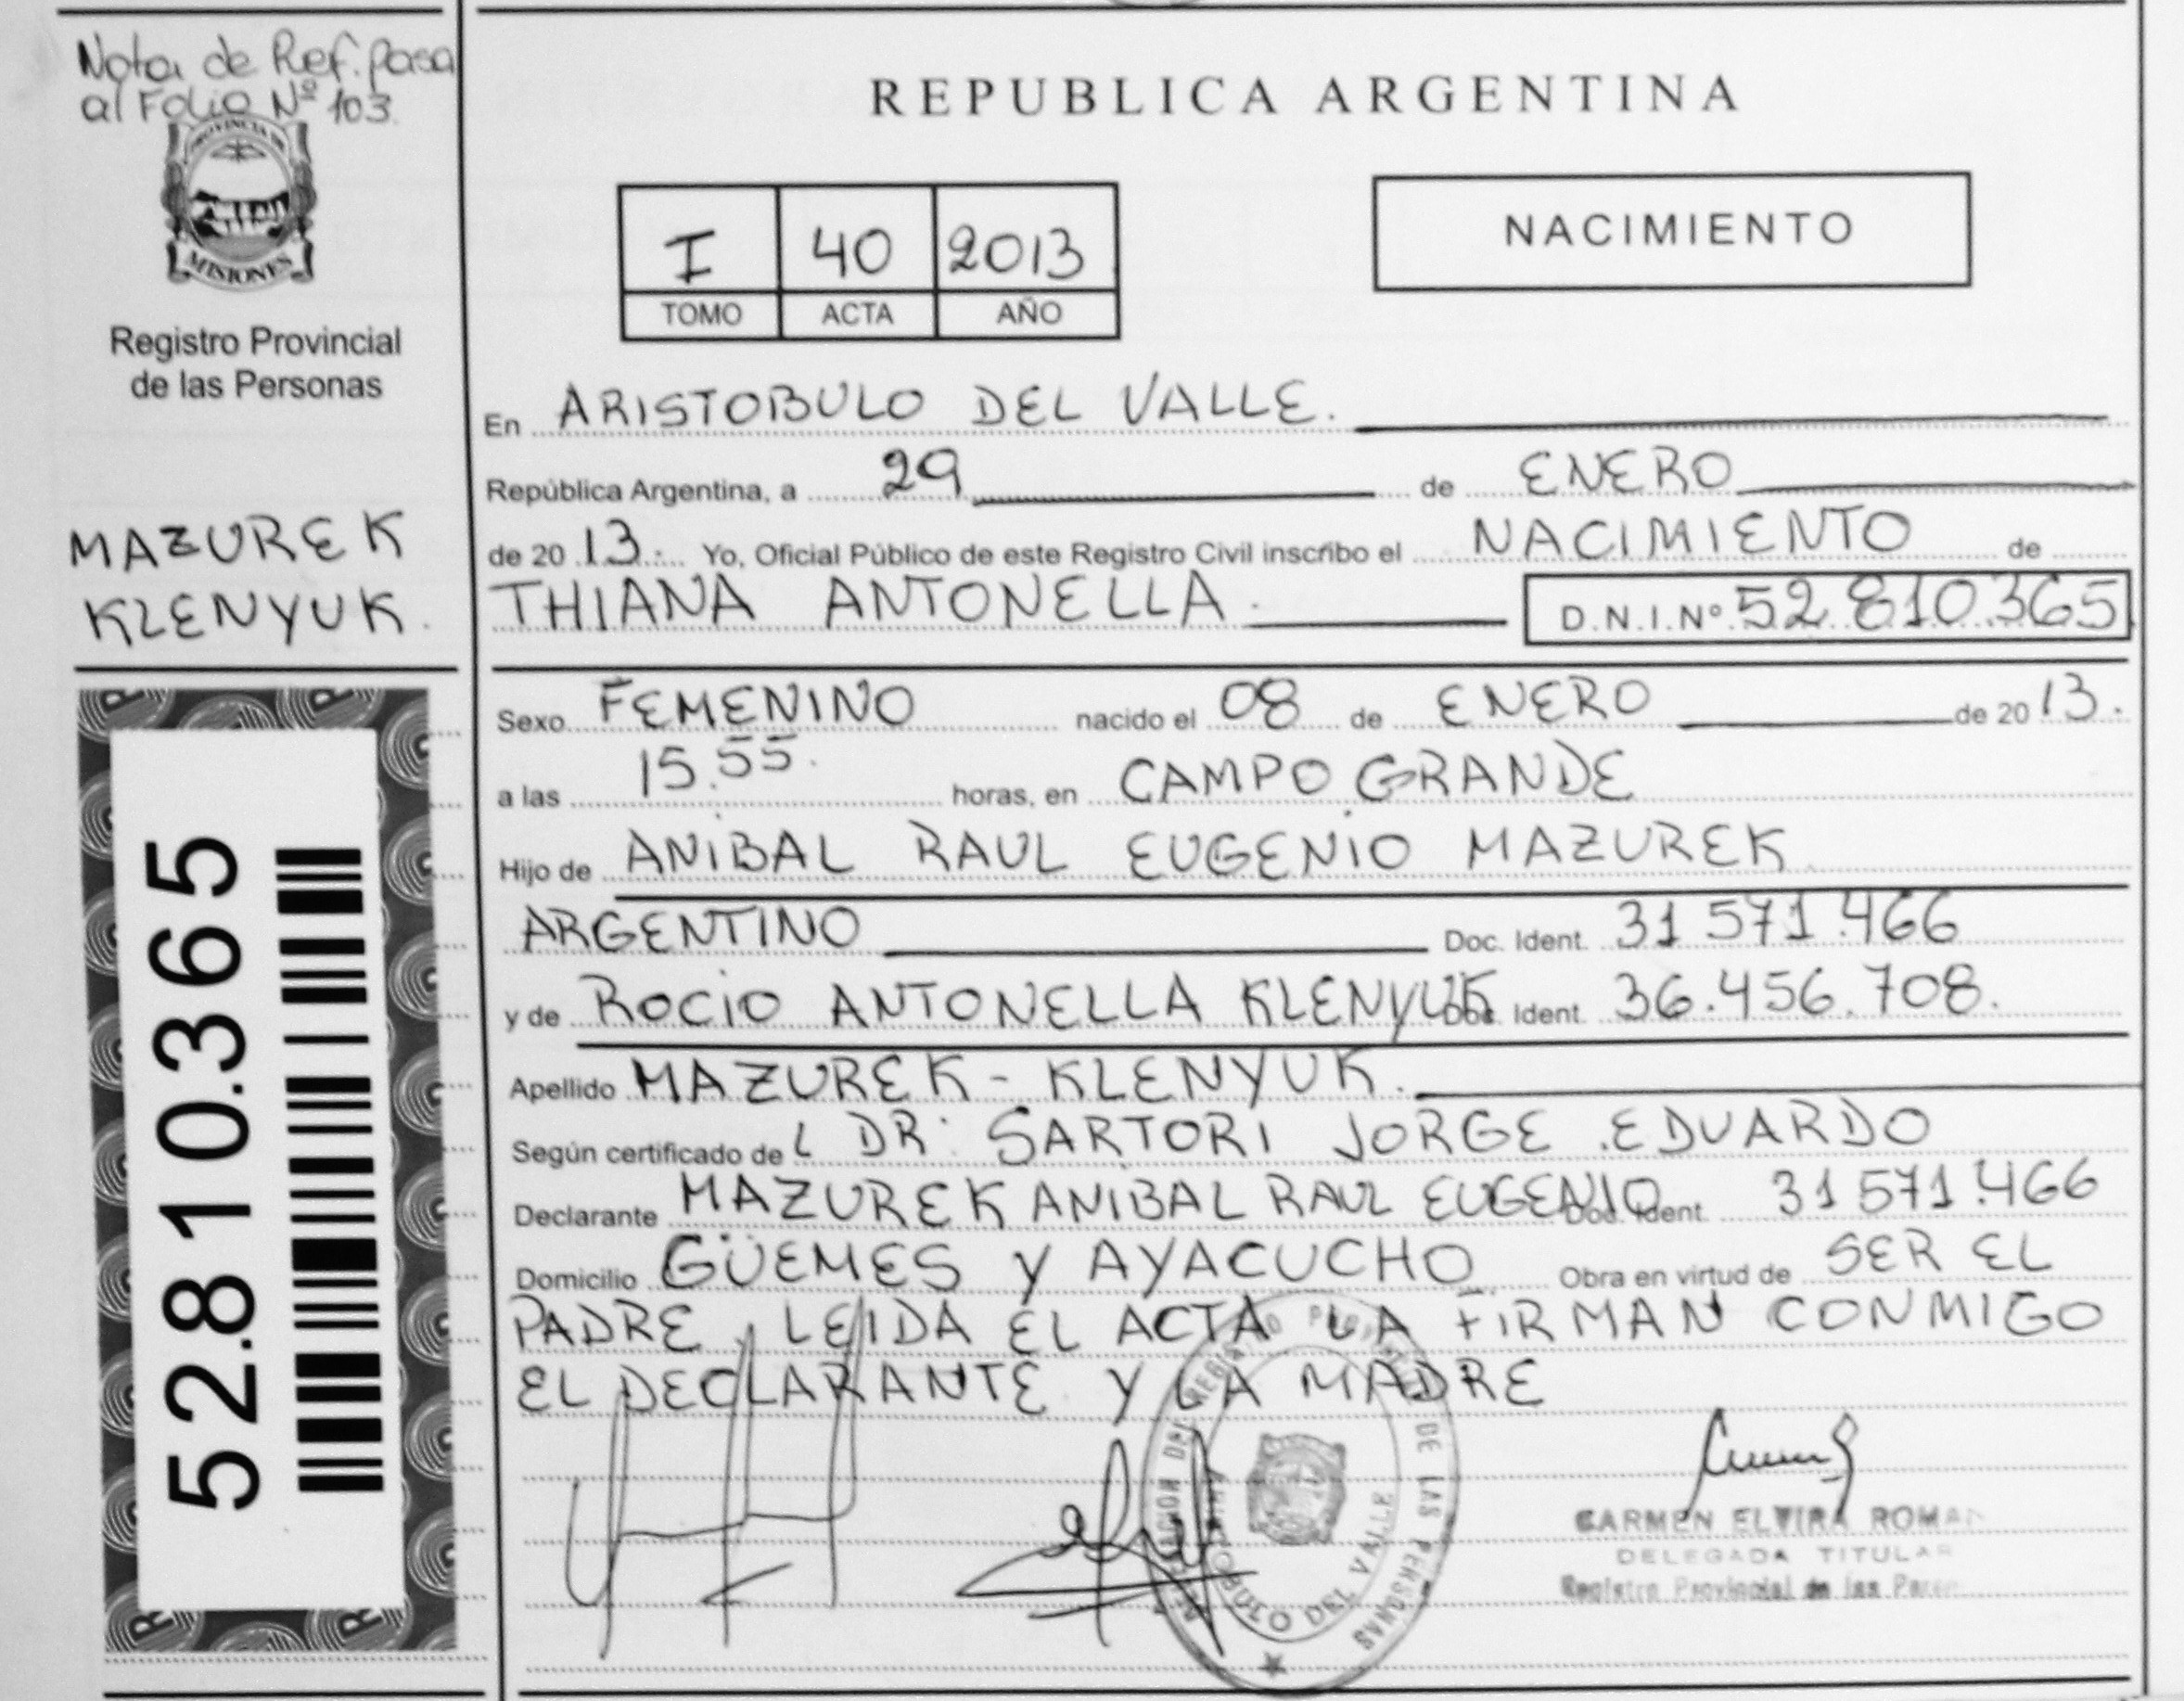 Nota de Ref. pasa
al Folio Nº 103.
PROVINCIA DE
MISIONES
Registro Provincial
de las Personas
MAZUREK
KLENYUK.
52.810.365
REPUBLICA ARGENTINA
I 40 2013
TOMO ACTA AÑO
NACIMIENTO
En ARISTOBULO DEL VALLE.
República Argentina, a 29 de ENERO
de 20 13. Yo, Oficial Público de este Registro Civil inscribo el NACIMIENTO de
THIANA ANTONELLA. D.N.I.Nº 52.810.365
Sexo FEMENINO nacido el 08 de ENERO de 20 13.
a las 15.55. horas, en CAMPO GRANDE
Hijo de ANIBAL RAUL EUGENIO MAZUREK
ARGENTINO Doc. Ident. 31 571.466
y de ROCIO ANTONELLA KLENYUK Doc. Ident. 36.456.708.
Apellido MAZUREK - KLENYUK.
Según certificado de L DR. SARTORI JORGE EDUARDO
Declarante MAZUREK ANIBAL RAUL EUGENIO Doc. Ident. 31 571.466
Domicilio GÜEMES Y AYACUCHO Obra en virtud de SER EL
PADRE. LEIDA EL ACTA LA FIRMAN CONMIGO
EL DECLARANTE Y LA MADRE
DEL REGISTRO PROVINCIAL DE LAS PERSONAS
ARISTOBULO DEL VALLE
CARMEN ELVIRA ROMAN
DELEGADA TITULAR
Registro Provincial de las Person